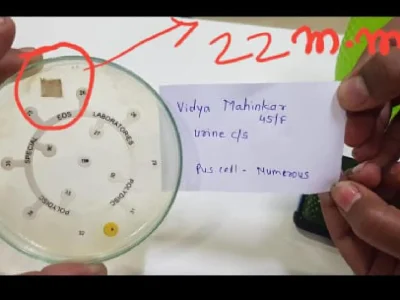 22 m.m
Vidya Mahinkar
45/F
Urine c/s
Pus cell - Numerous
EOS
LABORATORIES
SPECIAL
POLYDISC
POLYDISC